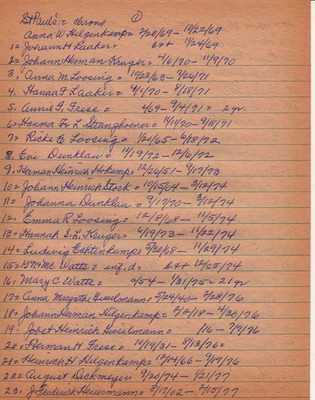 St Paul's = chrono. ①
Anna W. Hilgenkamp = 2/20/69 - 10/22/69
1 = Johann H Laaker = est 1/24/69
2 = Johann Herman Kruger = 4/6/70 - 11/9/70
3. Anna M. Loosing = 10/23/63 - 7/26/71
4. Hanna F Laaker = 4/1/70 - 7/18/71
5. Annie F. Frese = 4/69 - 9/4/71 = 2 yr.
6 = Hanna Fr L Stranghoener = 4/1/70 - 9/18/71
7 = Ricke E Loosing = 1/20/65 - 6/8/72
8. Eva Dunklau = 11/19/72 - 12/6/72
9. Herman Heinrich Hokamp = 12/26/51 - 9/17/73
10 = Johann Heinrich Stork = 10/15/04 - 3/12/74
11 = Johanna Dunklau = 9/17/70 - 3/12/74
12. Emma R Loosing = 12/8/68 - 11/5/74
13 = Hannah S.L. Kruger = 6/19/73 - 11/22/74
14 = Ludwig Echtenkamp = 5/30/68 - 11/29/74
15 = Wm Mc Watte = inf. d. est 12/25/74
16. Mary C Watte = 4/54 - 1/31/75 = 21 yr
17 = Anna Margreth Giselmann = 5/24/40 - 2/28/76
18 = Johann Heman Hilgenkamp = 2/12/18 - 4/30/76
19. Jobst Heinrich Giselmann = 1/16 - 7/7/76
20 = Herman H Frese = 10/19/31 - 9/13/76
21 = Heinrich H Hilgenkamp = 12/14/66 - 9/19/76
22 = August Dickmeyer = 9/20/74 - 1/21/77
23. J. Frederick Heuermann = 3/17/02 - 2/15/77